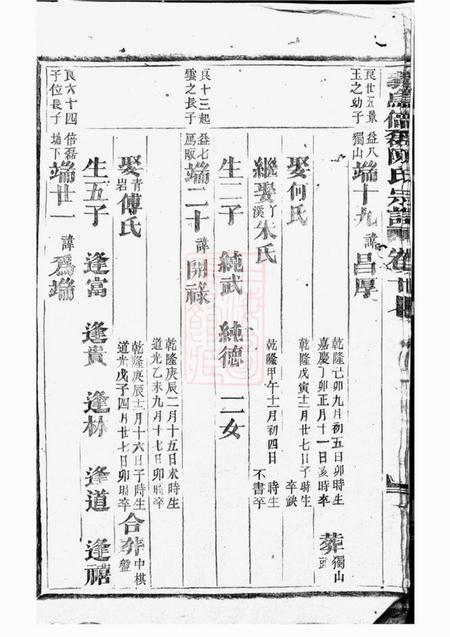 義烏倍磊陳氏宗譜卷
良廿五景益八
玉之幼子獨山
端十九諱昌厚
乾隆己卯九月初五日卯時生
嘉慶丁卯正月十一日亥時卒
葬獨山頭
娶何氏
乾隆戊寅十二月廿七日子時生
卒缺
繼娶丫溪朱氏
乾隆甲午十一月初四日時生
不書卒
生二子 純武 純德 一女
良十三起益七
雲之長子
端二十諱開祿
乾隆庚辰二月十五日未時生
道光乙未九月十七日卯時卒
娶青岩傅氏
乾隆庚辰十二月十六日子時生
道光戊子四月廿七日卯時卒
合葬中棋盤
生五子 逢富 逢貴 逢林 逢道 逢禧
良六十四倍磊
子位長子塘下
端廿一諱為端